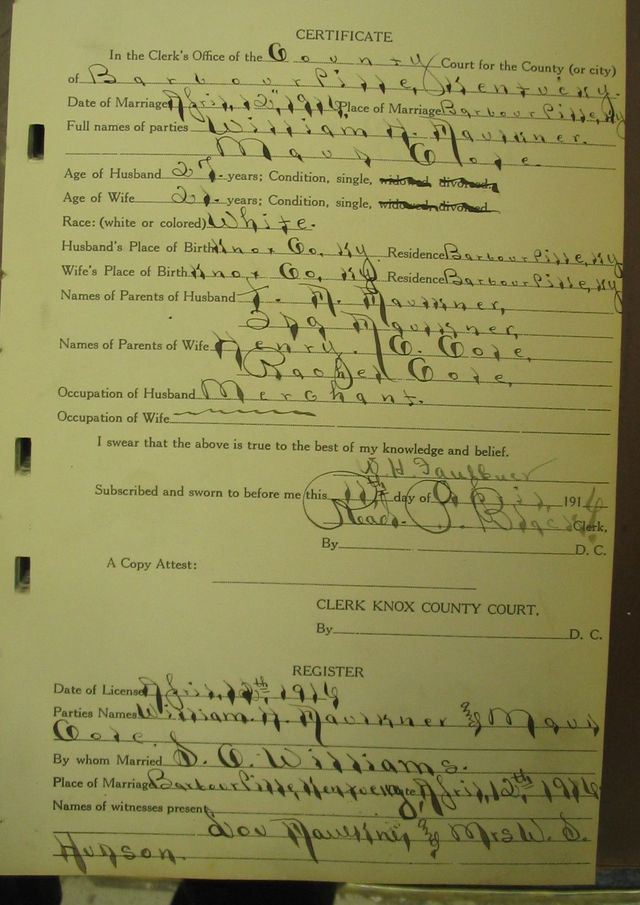 CERTIFICATE
In the Clerk's Office of the County Court for the County (or city)
of Barbourville, Kentucky.
Date of Marriage April, 12th, 1916, Place of Marriage Barbourville, Ky
Full names of parties William H. Faulkner.
Maud Cole.
Age of Husband years; Condition, single, widowed, divorced,
Age of Wife 21. years; Condition, single, widowed, divorced.
Race: (white or colored) White.
Husband's Place of Birth Knox Co, Ky. Residence Barbourville, Ky
Wife's Place of Birth Knox Co, Ky Residence Barbourville, Ky
Names of Parents of Husband Faulkner,
Faulkner,
Names of Parents of Wife Henry. C. Cole,
Rachel Cole,
Occupation of Husband Merchant.
Occupation of Wife
I swear that the above is true to the best of my knowledge and belief.
W H Faulkner
Subscribed and sworn to before me this day of April, 1916
Read. P. Black Clerk.
By D. C.
A Copy Attest:
CLERK KNOX COUNTY COURT.
By D. C.
REGISTER
Date of License April, 12th, 1916
Parties Names William. H. Faulkner & Maud
Cole,
By whom Married Williams.
Place of Marriage Barbourville, Kentucky, April, 12th, 1916
Names of witnesses present,
Faulkner & Mrs W. S.
Hudson.